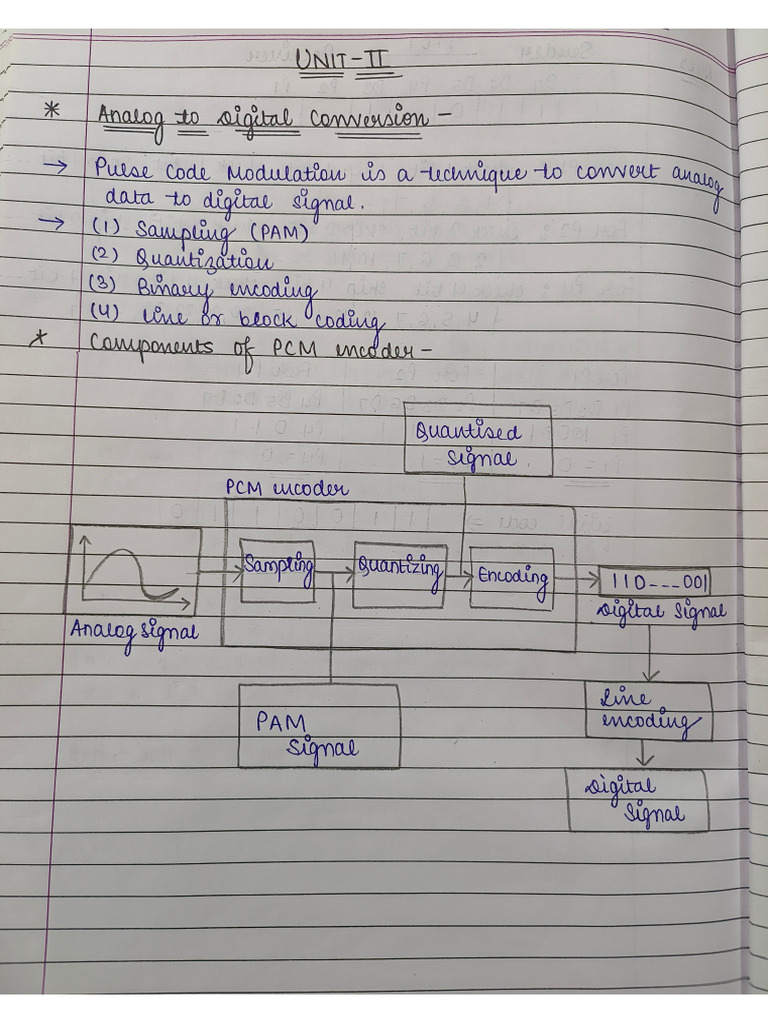 UNIT-II
* Analog to Digital Conversion -
→ Pulse Code Modulation is a technique to convert analog
data to digital signal.
→ (1) Sampling (PAM)
(2) Quantization
(3) Binary encoding
(4) Line or block coding
* Components of PCM encoder -
Quantised
Signal
PCM encoder
Sampling
Quantizing
Encoding
110---001
Digital Signal
Analog Signal
PAM
Signal
Line
encoding
Digital
Signal